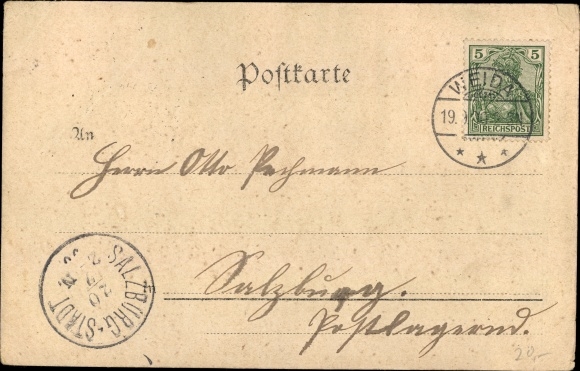 Postkarte
5 5
WEIDA
19.
REICHSPOST
An
Herrn Otto Pechmann
Salzburg.
Postlagernd.
SALZBURG-STADT
20,-